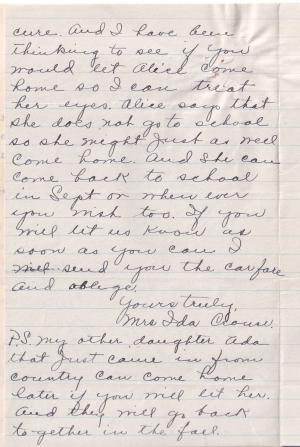 cure. And I have been
thinking to see if you
would let Alice come
home so I can treat
her eyes. Alice says that
she does not go to school
so she might just as well
come home. And She can
come back to school
in Sept or when ever
you wish too. If you
will let us know as
soon as you can I
will send you the carfare
and oblige.
Yours truly,
Mrs Ida Clouse.
P.S. My other daughter Ada
that just came in from
country can come home
later if you will let her.
And they will go back
to-gether in the fall.